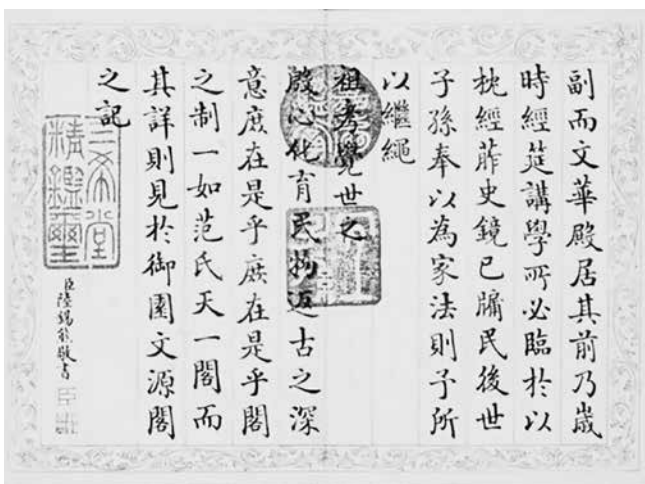 副而文華殿居其前乃歲
時經筵講學所必臨於以
枕經葄史鏡己牖民後世
子孫奉以為家法則予所
以繼繩
祖考覺世之
殷心化育民物返古之深
意庶在是乎庶在是乎閣
之制一如范氏天一閣而
其詳則見於御園文源閣
之記
三希堂
精鑑璽
臣陸錫熊敬書